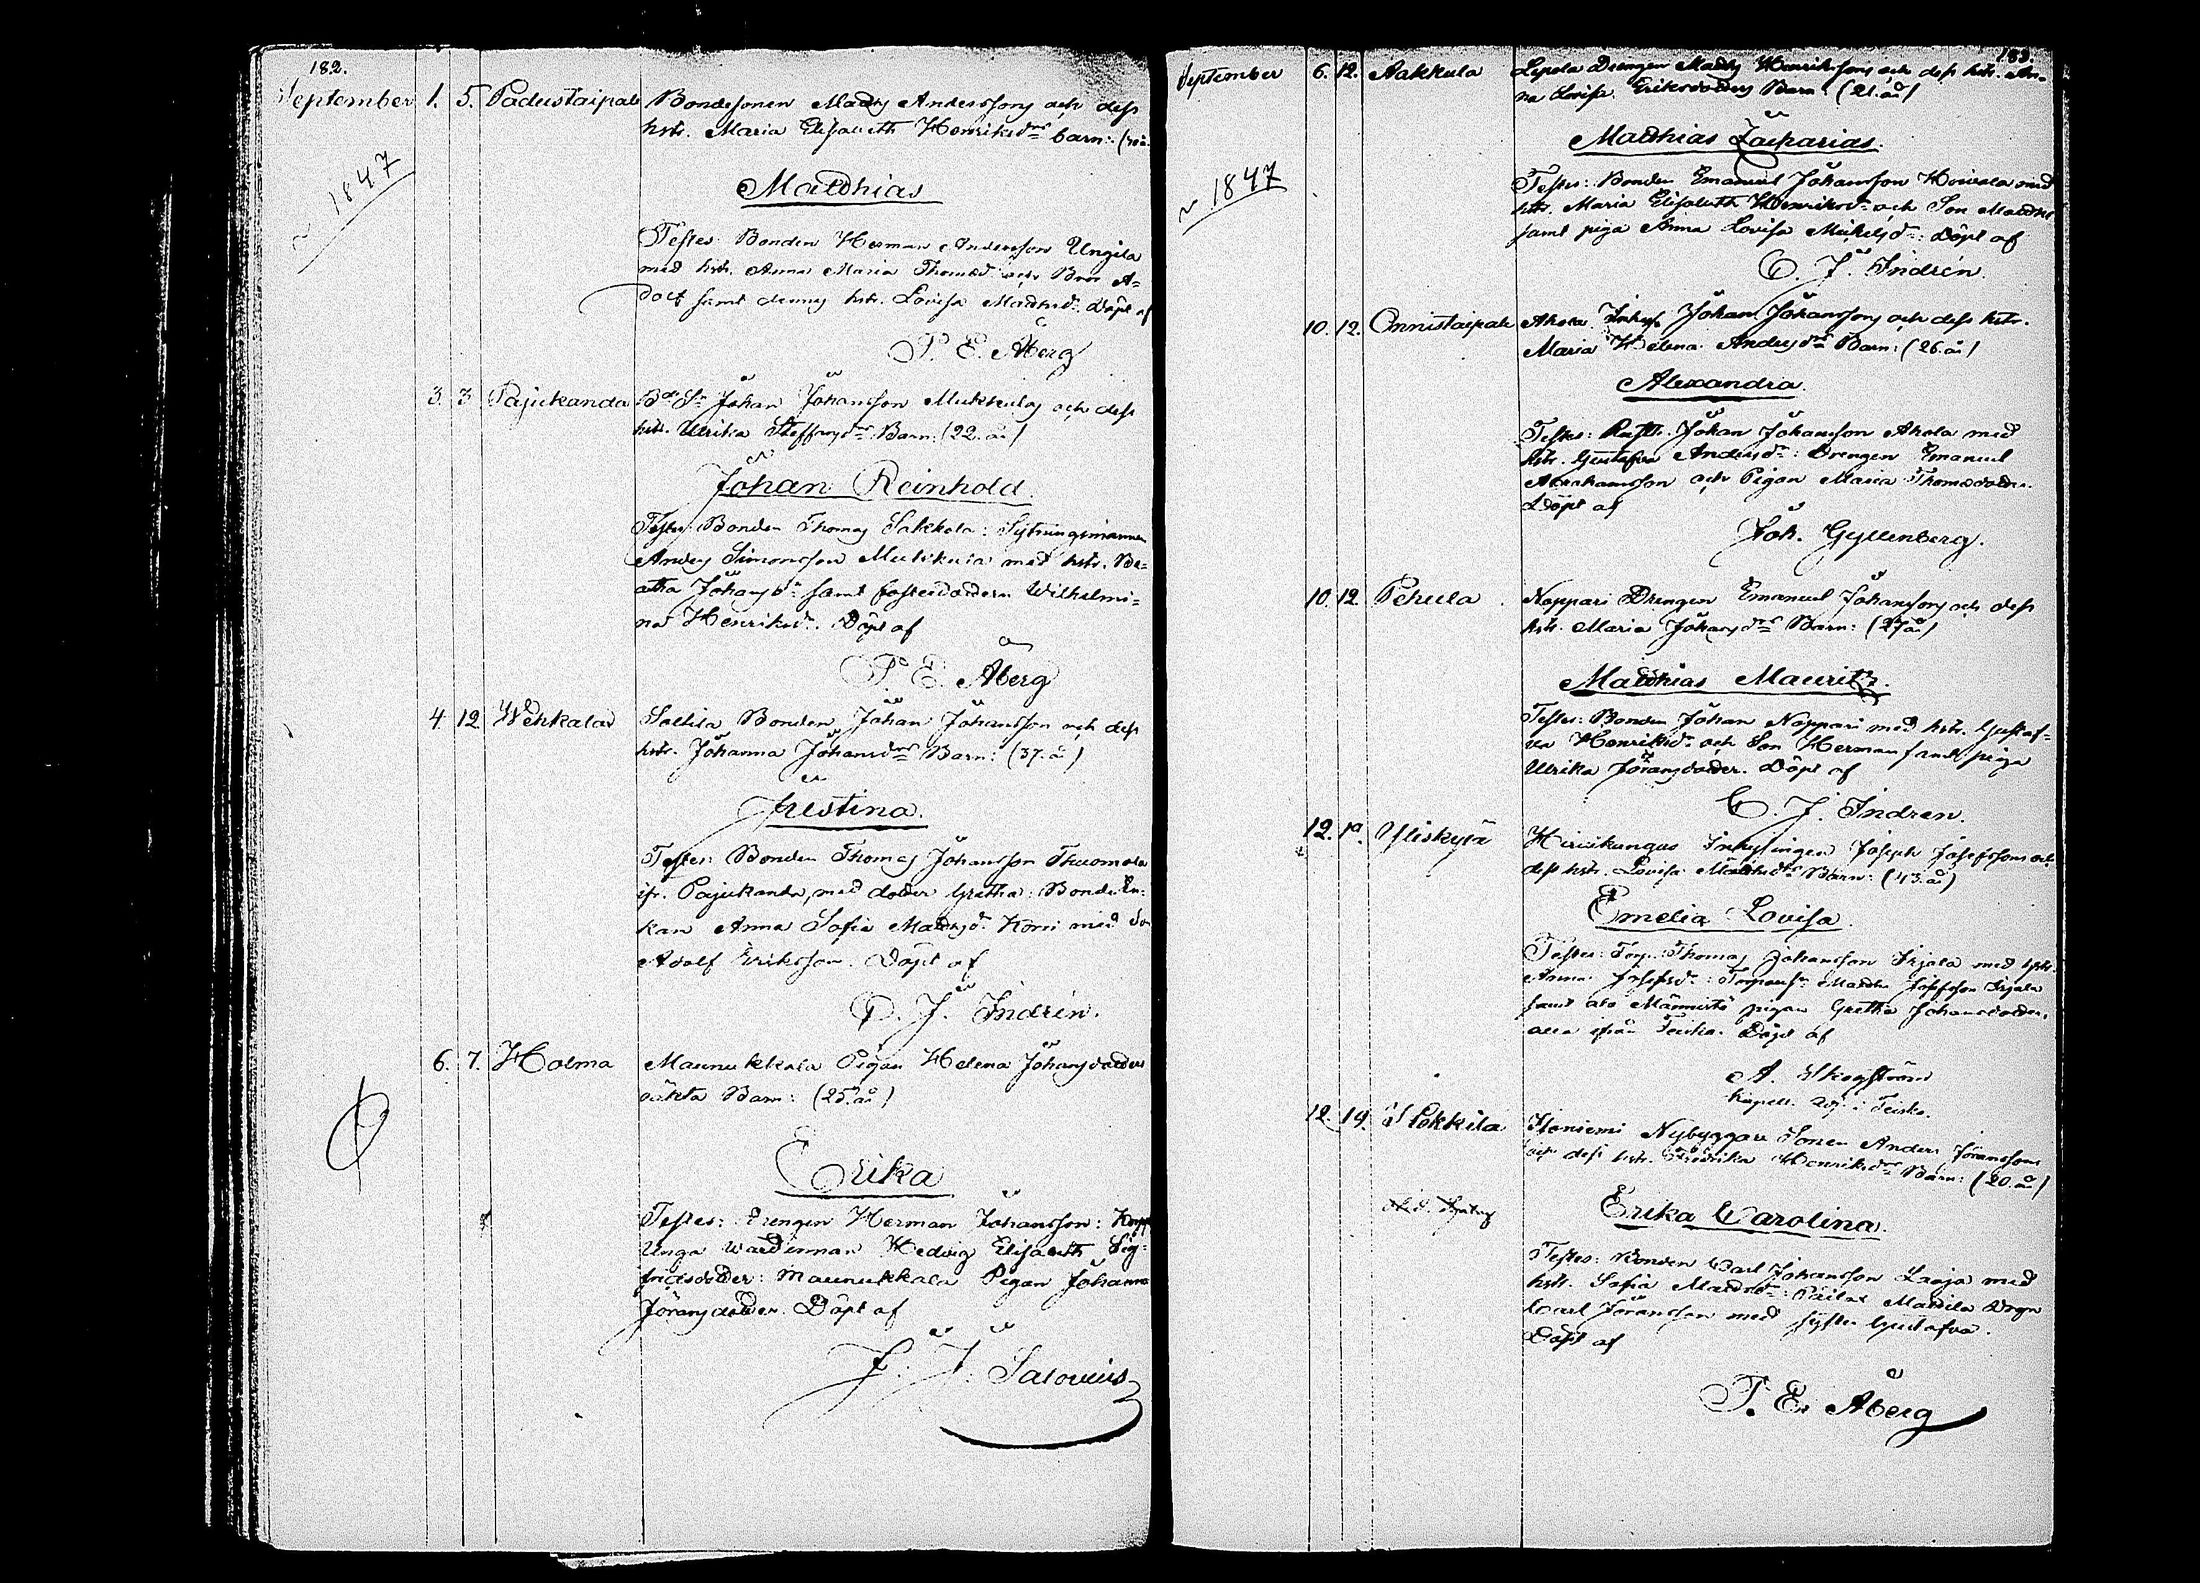 182.
September 1. 5. Padustaipale Bondesonen Matts Anderssons och dess
hstr. Maria Elisabeth Henriksd:rs barn:
~ 1847
Matthias
Testes: Bonden Herman Andersson Ungila
med hstr. Anna Maria Thomasd: och Bror A=
dolf samt dennes hstr. Lovisa Mattsd: Döpt af
P. E. Åberg
3. 3 Pajukanda Bde Sn Johan Johansson Mukkulas och dess
hstr. Ulrika Steffansd:rs Barn: (22. år)
Johan Reinhold
Testes: Bonden Thomas Sakkola: Sytningsmannen
Anders Simonsson med hstr. Be=
atha Johansd: samt fosterdottern Wilhelmi=
na Henriksd: Döpt af
P. E. Åberg
4. 12 Wehkala Bonden Johan Johansson och dess
hstr. Johanna Johansd:rs Barn: (37. år)
Justina.
Testes: Bonden Thomas Johansson Thuomola
ifr. Pajukanda, med dotter Gretha: Bonde En=
kan Anna Sofia Mattsd: med Son
Adolf Eriksson. Döpt af
C. J. Indrén.
6. 7. Holma Maunukkala Pigan Helena Johansdotters
oäkta Barn: (25. år)
Erika
Testes: Drengen Herman Johansson:
Unga Hedvig Elisabeth Sig=
fridsdotter: Maunukkala Pigan Johanna
Göransdotter. Döpt af
J. J. Salovius
183.
September 6. 12. Aakkula Lepola Drengen Matts Henrikssons och dess hstr. An=
na Lovisa Eriksdotters Barn: (21. år)
~ 1847
Matthias Zacharias.
Testes: Bonden Emanuel Johansson med
hstr. Maria Elisabeth Henriksd: och Son Matths
samt piga Anna Lovisa Michelsd: Döpt af
C. J. Indrén.
10. 12. Onnistaipale Ahola Inhys. Johan Johanssons och dess hstr.
Maria Helena Andersd:rs Barn: (26. år)
Alexandra.
Testes: Johan Johansson Ahola med
hstr. Gustafva Andersd: Drengen Emanuel
Abrahamsson och Pigan Maria Thomasdotter.
Döpt af
Joh. Gyllenberg.
10. 12. Pehula Noppari Drengen Emanuel Johanssons och dess
hstr. Maria Johansd:rs Barn: (27 år)
Matthias Mauritz.
Testes: Bonden Johan Noppari med hstr. Gustaf=
va Henriksd: och Son Herman samt piga
Ulrika Göransdotter. Döpt af
C. J. Indren.
12. Yliskylä Inhysingen Joseph Josefssons och
dess hstr. Lovisa Mattsd:rs Barn: (43. år)
Emelia Lovisa.
Testes: Torp. Thomas Johansson Irjala med hstr.
Anna Josefsd: Matths Josefsson Irjala
samt Männistö pigan Gretha Johansdotter,
alla ifrån Teisko. Döpt af
A. Skogström
Kapell. adj. i Teisko.
12. 19. Pokkila Haniemi Nybyggare Sonen Anders Göranssons
och dess hstr. Fredrika Henriksd:rs Barn: (20. år)
Erika Carolina.
Testes: Bonden Carl Johansson Laaja med
hstr. Sofia Mattsd: Mattila Drgn
Carl Göransson med syster Gustafva.
Döpt af
P. E. Åberg